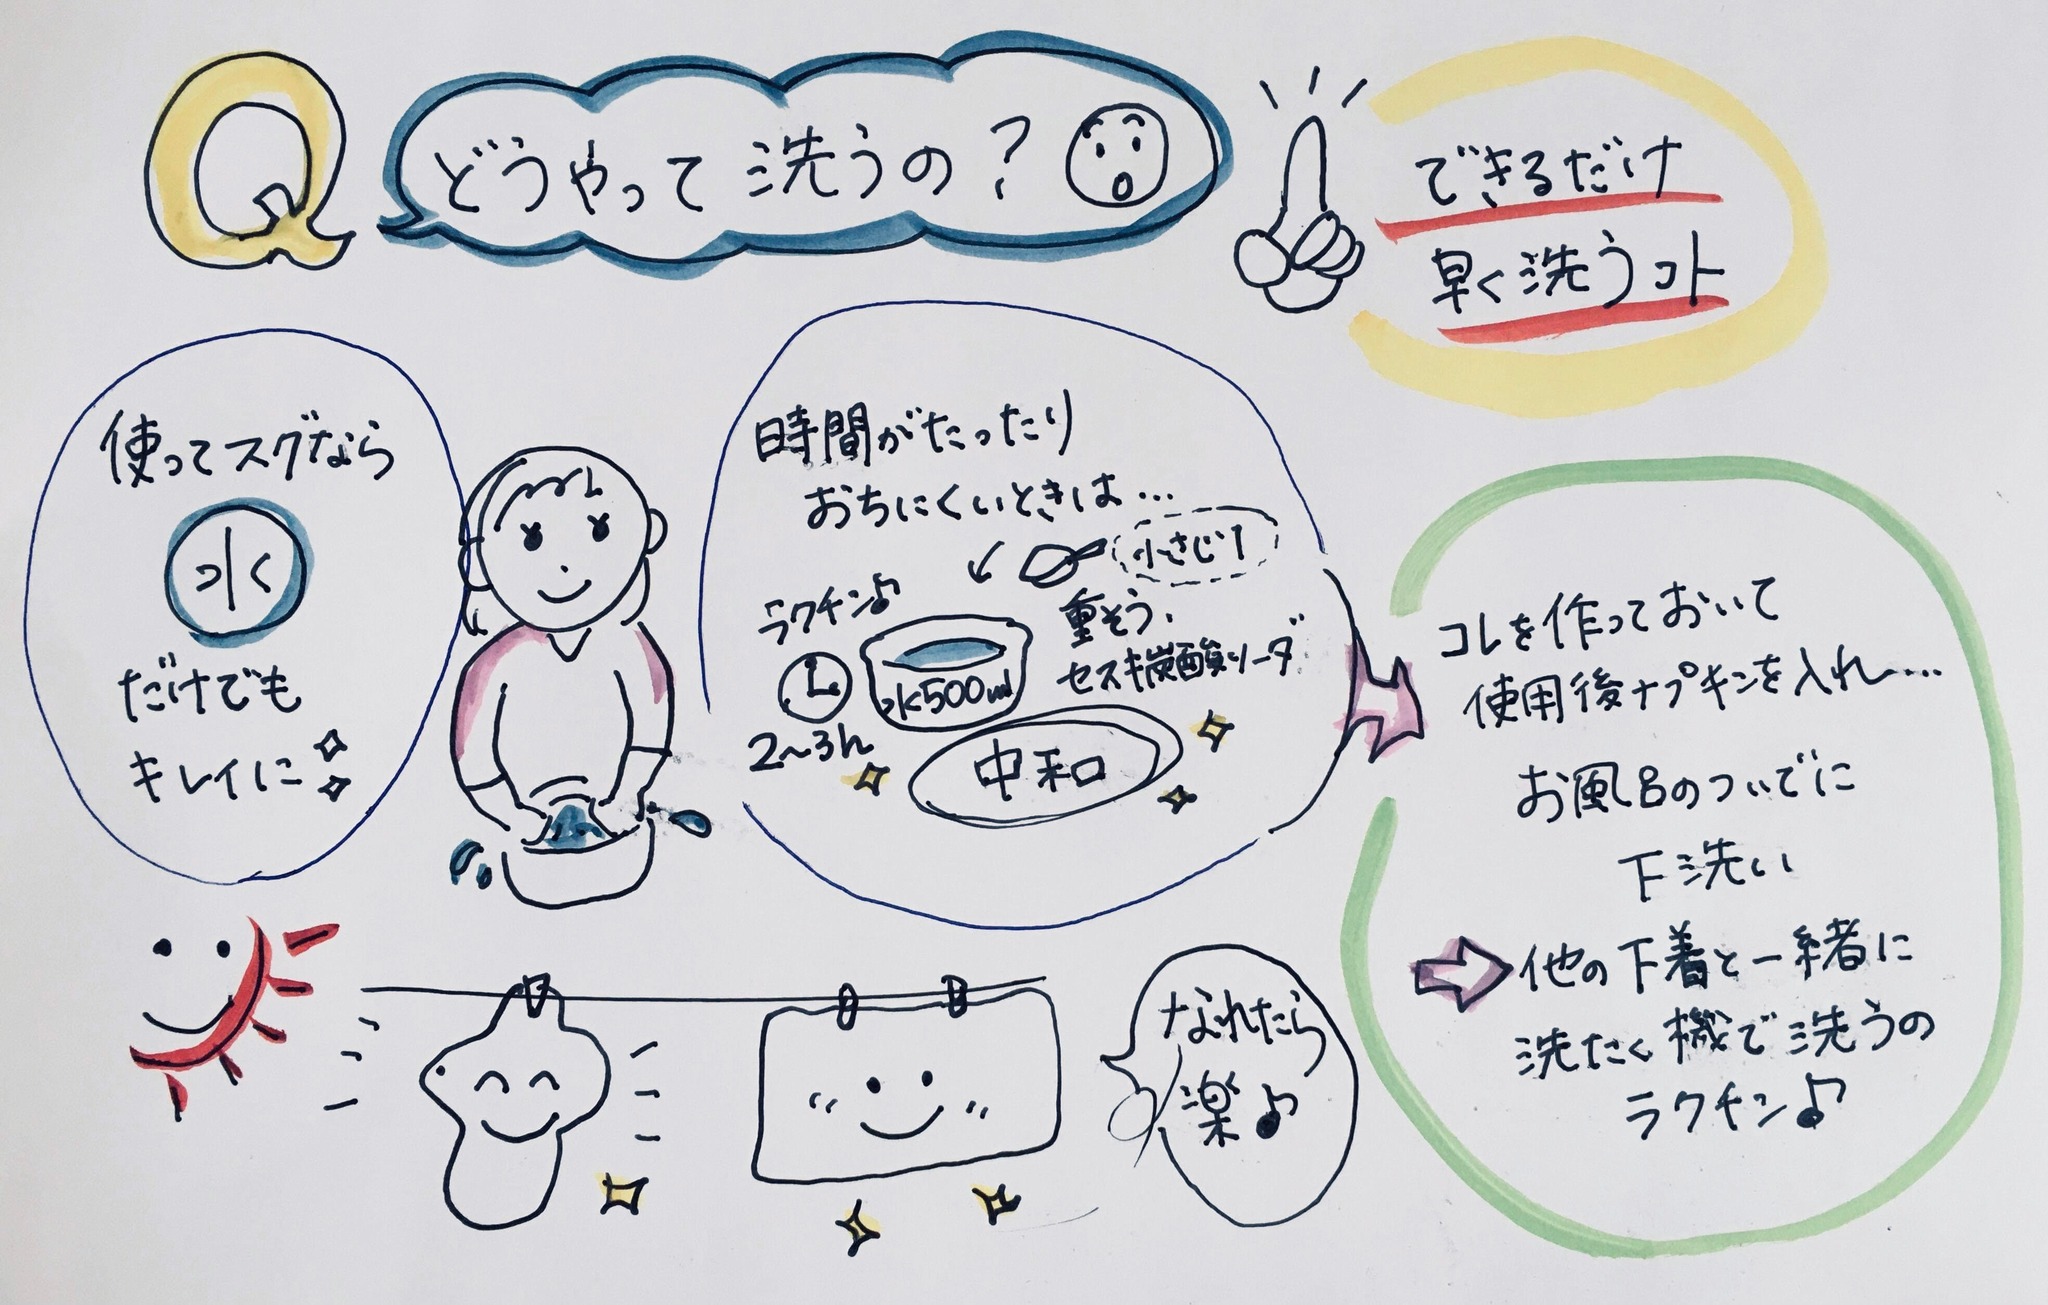 Q
どうやって洗うの?
できるだけ
早く洗うコト
使ってスグなら
水
だけでも
キレイに
時間がたったり
おちにくいときは…
小さじ1
重そう、
セスキ炭酸ソーダ
ラクチン♪
水500ml
2〜3h
中和
コレを作っておいて
使用後ナプキンを入れ…
お風呂のついでに
下洗い
⇨他の下着と一緒に
洗たく機で洗うの
ラクチン♪
なれたら
楽♪